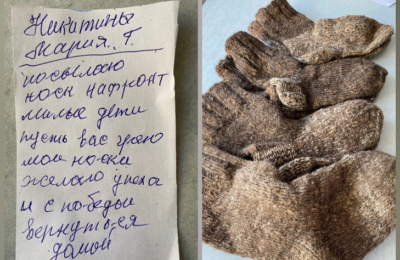 Никитины
Мария. Т.
посылаю
носки на фронт
милые дети
пусть вас греют
мои носки
желаю успеха
и с победы
вернуться
домой